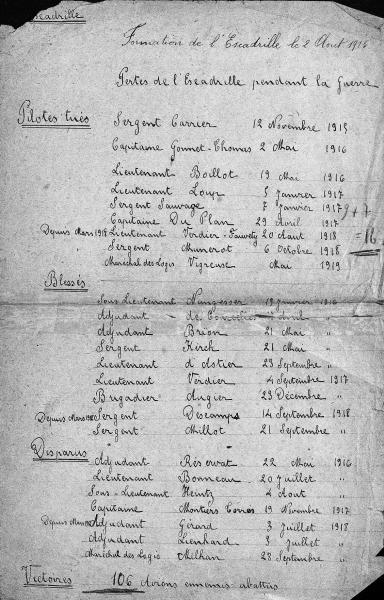 Escadrille
Formation de l'Escadrille le 2 Août 1914
Pertes de l'Escadrille pendant la Guerre
Pilotes tués
Sergent Carrier 12 Novembre 1915
Capitaine Gonnet-Thomas 2 Mai 1916
Lieutenant Boillot 19 Mai 1916
Lieutenant Loup 5 Janvier 1917
Sergent Sauvage 7 Janvier 1917
9 + 7
Capitaine Du Plan 29 Avril 1917
Depuis Mars 1918 Lieutenant Verdier-Fauvety 20 Août 1918
= 16
Sergent Munerot 6 Octobre 1918
Maréchal des Logis Vigreuse Mai 1919
Blessés
Sous Lieutenant Nungesser 19 Janvier 1916
Adjudant de Avril "
Adjudant Brion 21 Mai "
Sergent Kirch 21 Mai "
Lieutenant d'Astier 23 Septembre "
Lieutenant Verdier 4 Septembre 1917
Brigadier Augier 23 Décembre "
Depuis Mars 1918 Sergent Descamps 14 Septembre 1918
Sergent Millot 21 Septembre "
Disparus
Adjudant Réservat 22 Mai 1916
Lieutenant Bonneau 20 Juillet "
Sous-Lieutenant Heintz 4 Août "
Capitaine Montiers 19 Novembre 1917
Depuis Mars Adjudant Gérard 3 Juillet 1918
Adjudant Lienhard 3 Juillet "
Maréchal des Logis Milhau 28 Septembre "
Victoires 106 avions ennemis abattus